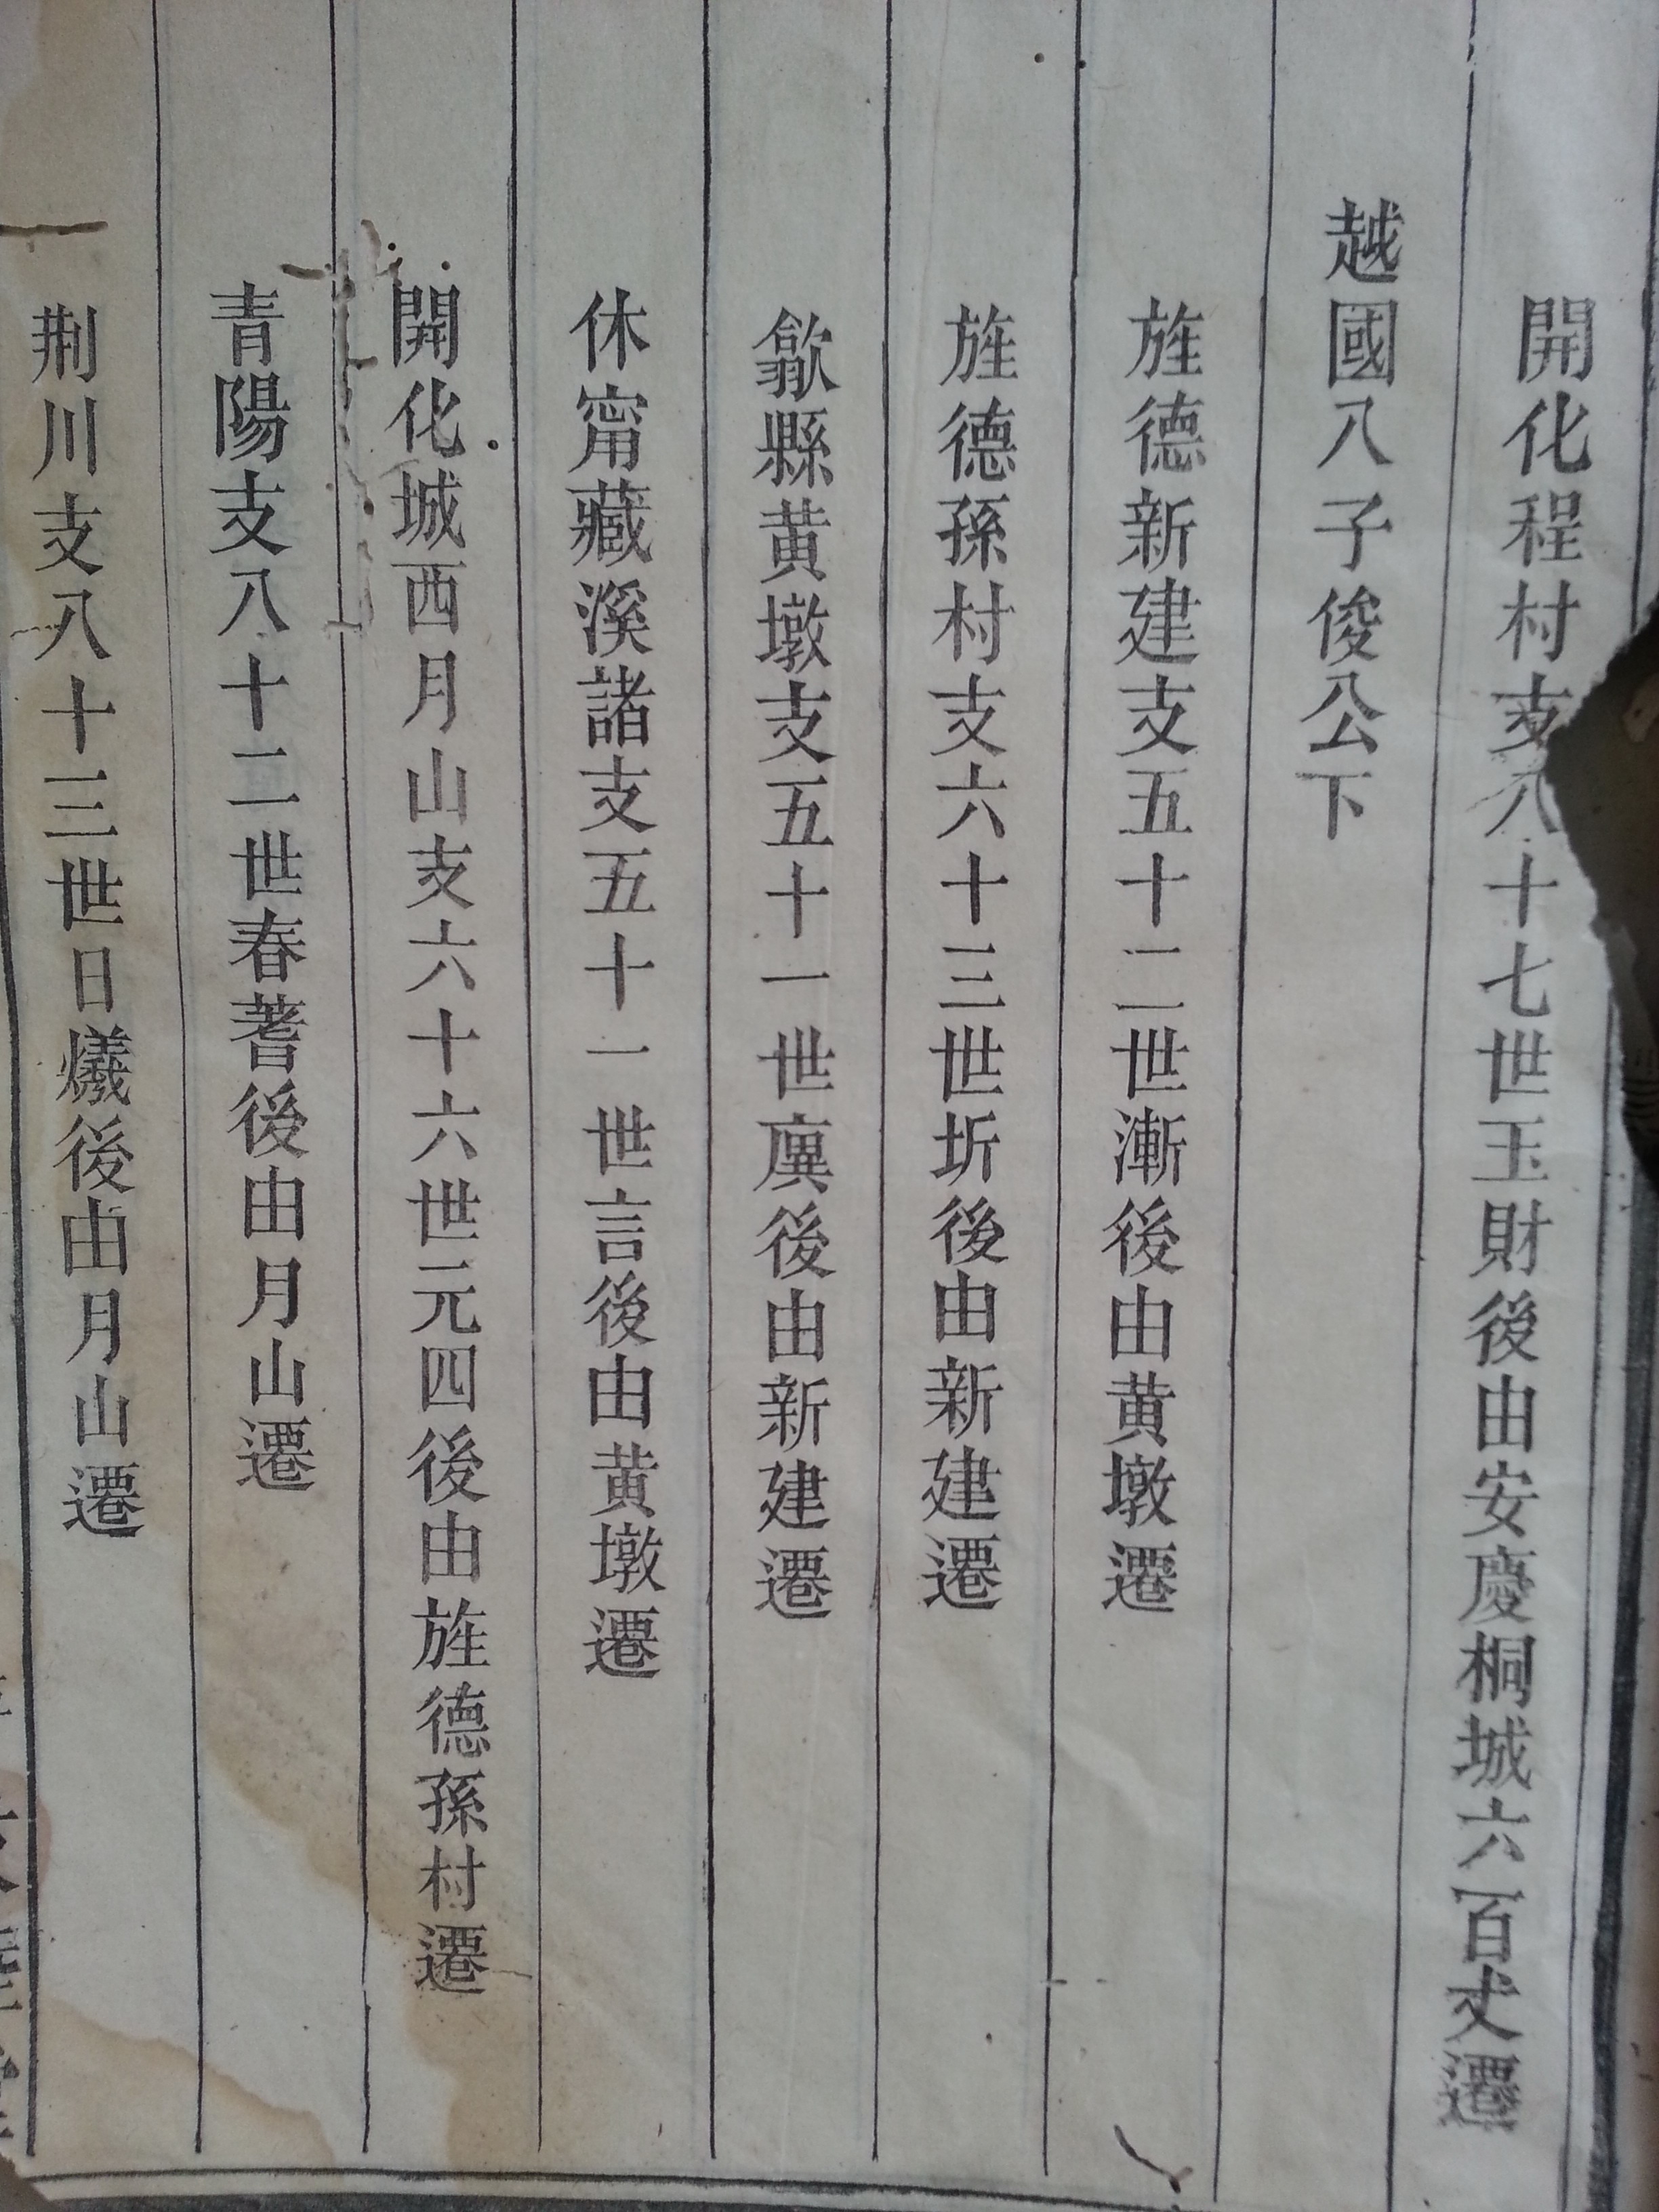 開化程村支八十七世玉財後由安慶桐城六百丈遷
越國八子俊公下
旌德新建支五十二世漸後由黄墩遷
旌德孫村支六十三世圻後由新建遷
歙縣黄墩支五十一世廙後由新建遷
休甯藏溪諸支五十一世言後由黄墩遷
開化城西月山支六十六世元四後由旌德孫村遷
青陽支八十二世春蓍後由月山遷
荆川支八十三世日爔後由月山遷